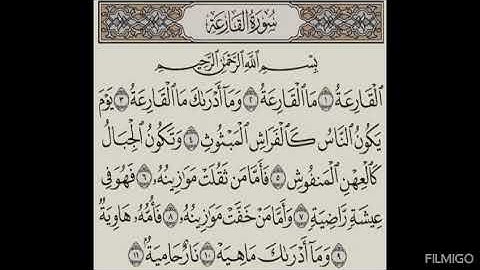 سُورَةُ القَارِعَةِ
بِسْمِ ٱللَّهِ ٱلرَّحْمَٰنِ ٱلرَّحِيمِ
ٱلْقَارِعَةُ ١ مَا ٱلْقَارِعَةُ ٢ وَمَآ أَدْرَىٰكَ مَا ٱلْقَارِعَةُ ٣ يَوْمَ
يَكُونُ ٱلنَّاسُ كَٱلْفَرَاشِ ٱلْمَبْثُوثِ ٤ وَتَكُونُ ٱلْجِبَالُ
كَٱلْعِهْنِ ٱلْمَنفُوشِ ٥ فَأَمَّا مَن ثَقُلَتْ مَوَٰزِينُهُۥ ٦ فَهُوَ فِى
عِيشَةٍ رَّاضِيَةٍ ٧ وَأَمَّا مَنْ خَفَّتْ مَوَٰزِينُهُۥ ٨ فَأُمُّهُۥ هَاوِيَةٌ
٩ وَمَآ أَدْرَىٰكَ مَا هِيَهْ ١٠ نَارٌ حَامِيَةٌۢ ١١
FILMIGO